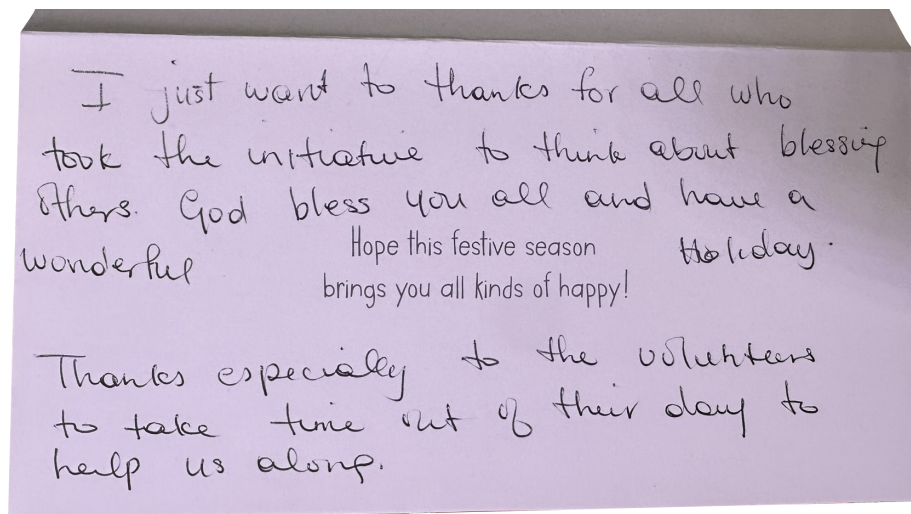 I just want to thanks for all who
took the initiative to think about blessing
others. God bless you all and have a
wonderful Holiday.
Hope this festive season
brings you all kinds of happy!
Thanks especially to the volunteers
to take time out of their day to
help us along.